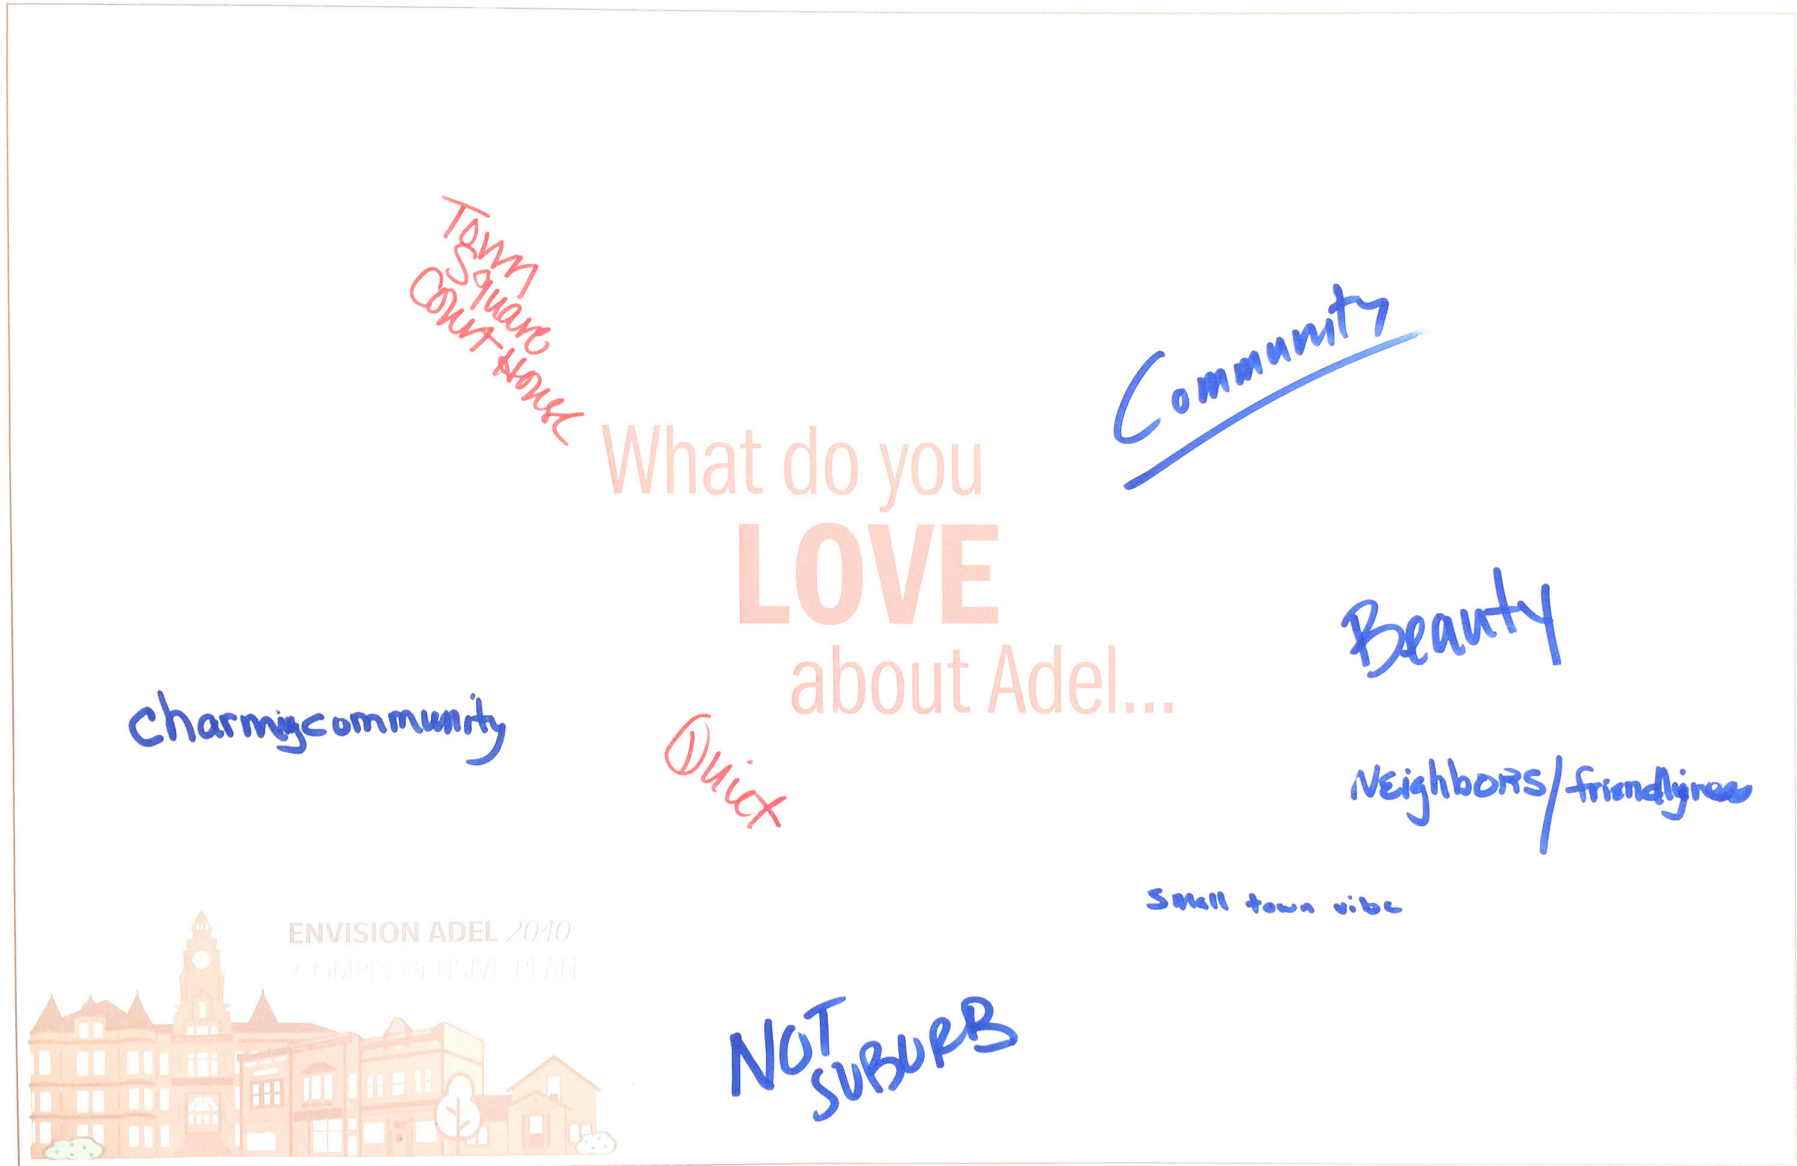 Town
Square
Court House
Community
What do you
LOVE
about Adel...
Beauty
charmigcommunity
Quiet
Neighbors/friendlyness
small town vibe
ENVISION ADEL 2040
COMPREHENSIVE PLAN
NOT
SUBURB